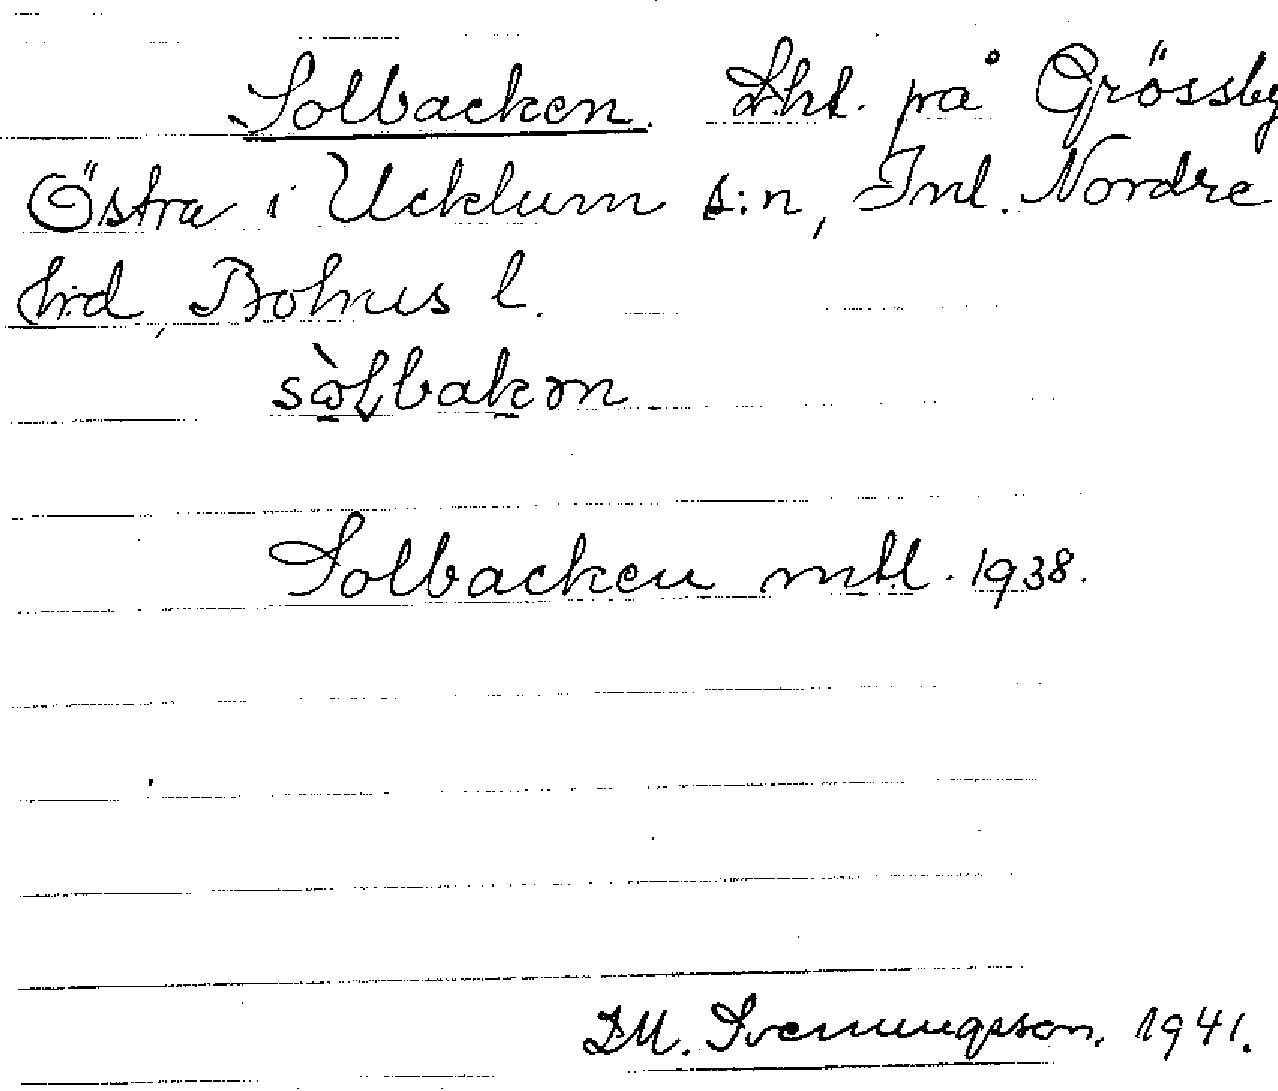 Solbacken. Lht. på Grössby
Östra i Ucklum s:n, Inl. Nordre
hd, Bohus l.
sòlbakən
Solbacken mtl. 1938.
Svenningsson. 1941.